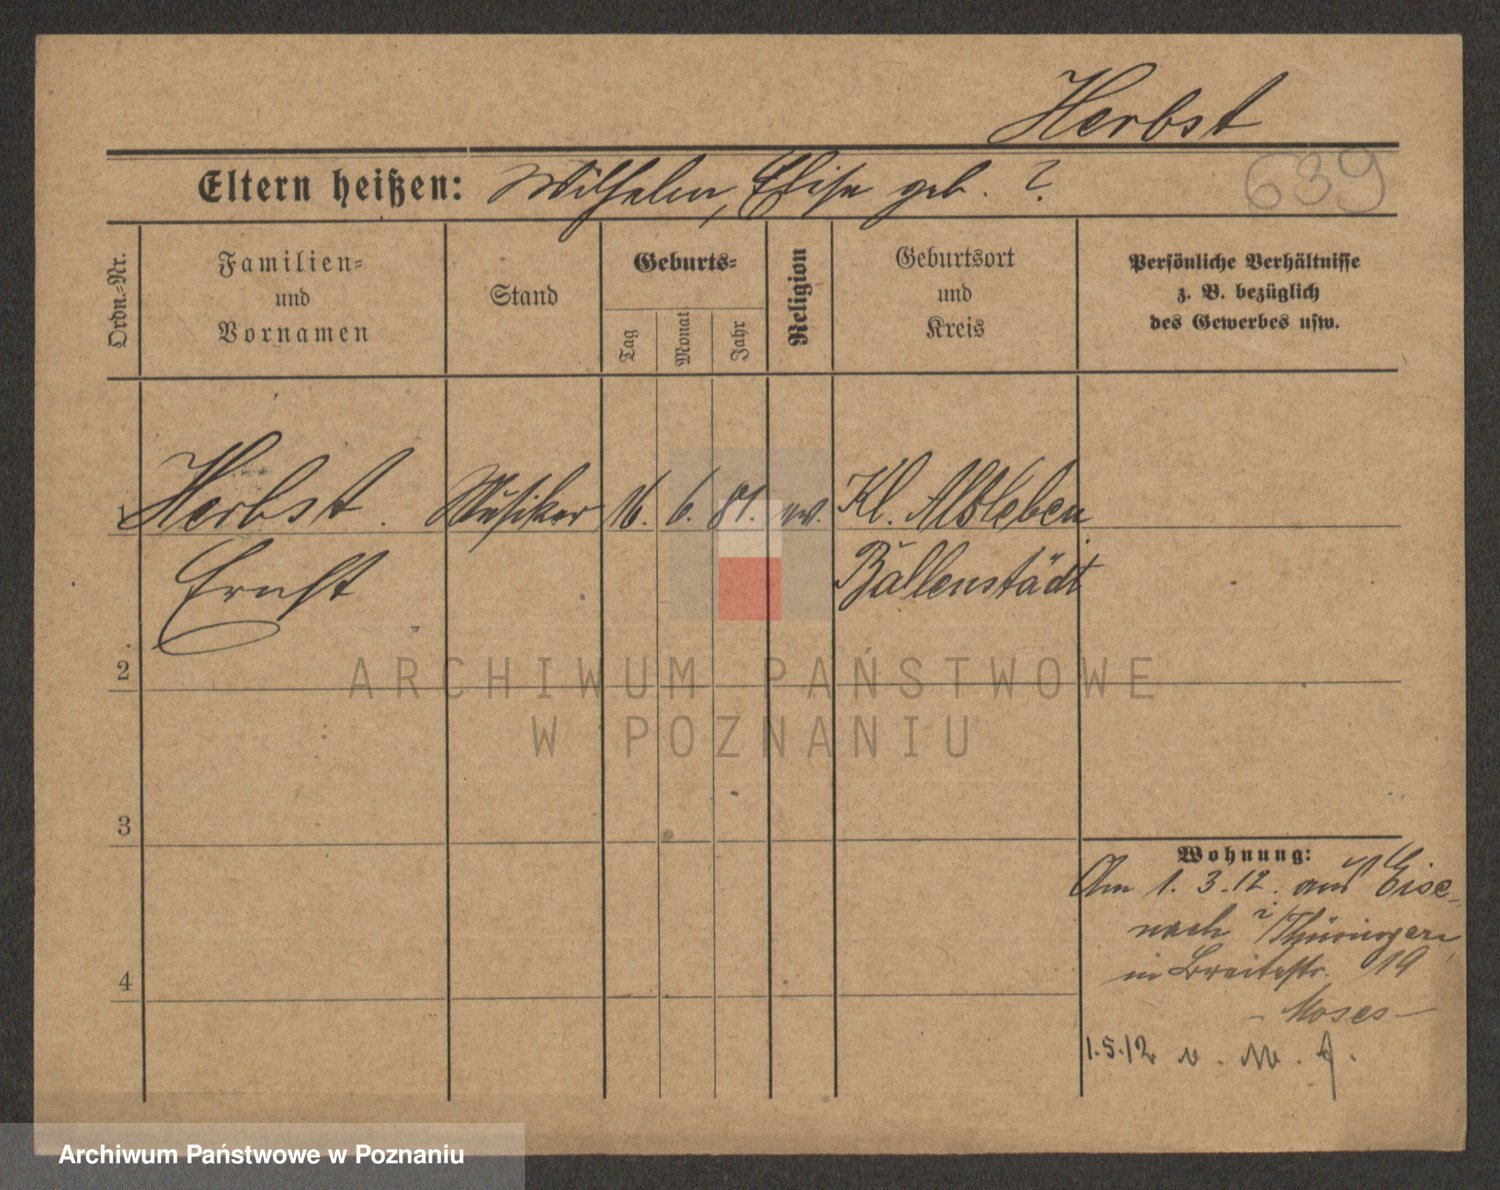 Herbst
639
Eltern heißen: Wilhelm, Elise geb. ?
Ordn.-Nr.
Familien-
und
Vornamen
Stand
Geburts-
Tag
Monat
Jahr
Religion
Geburtsort
und
Kreis
Persönliche Verhältnisse
z. B. bezüglich
des Gewerbes usw.
1
Herbst. Musiker 16. 6. 81. ev. Kl. Alsleben
Ernst Ballenstädt
2
3
4
Wohnung:
Am 1. 3. 12. aus Eise-
nach i/Thüringen
in Breitestr. 19
- Moses -
1.5.12 n. M.
ARCHIWUM PAŃSTWOWE
W POZNANIU
Archiwum Państwowe w Poznaniu